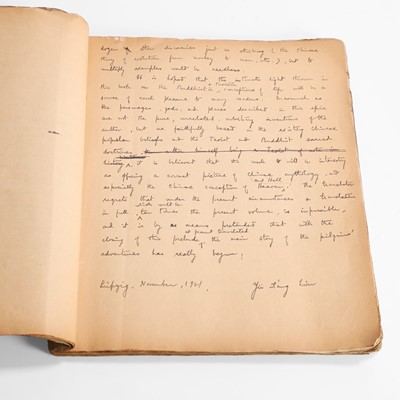 dozen other discoveries just as striking (the Chinese
theory of evolution from monkey to man, etc.), but to
multiply examples would be needless.
It is hoped that the intimate light thrown in
this book on the Buddhist & Taoistic conceptions of life will be a
source of real pleasure to many readers. Inasmuch as
the personages, gods, and places described in this epic
are not the pure, unrelated, unbelieving inventions of the
author, but are faithfully based on the existing Chinese
popular beliefs and the Taoist and Buddhist sacred
doctrines,
history, it is believed that the book will be interesting
as offering a correct picture of Chinese mythology, and
especially the Chinese conception of Heaven and Hell. The translator
regrets that under the present circumstances a translation
in full, which will be ten times the present volume, is impossible,
and it is by no means pretended that with the
closing of this prelude the main story of the pilgrims'
at present translated
adventures has really begun!
Leipzig, November, 1921.